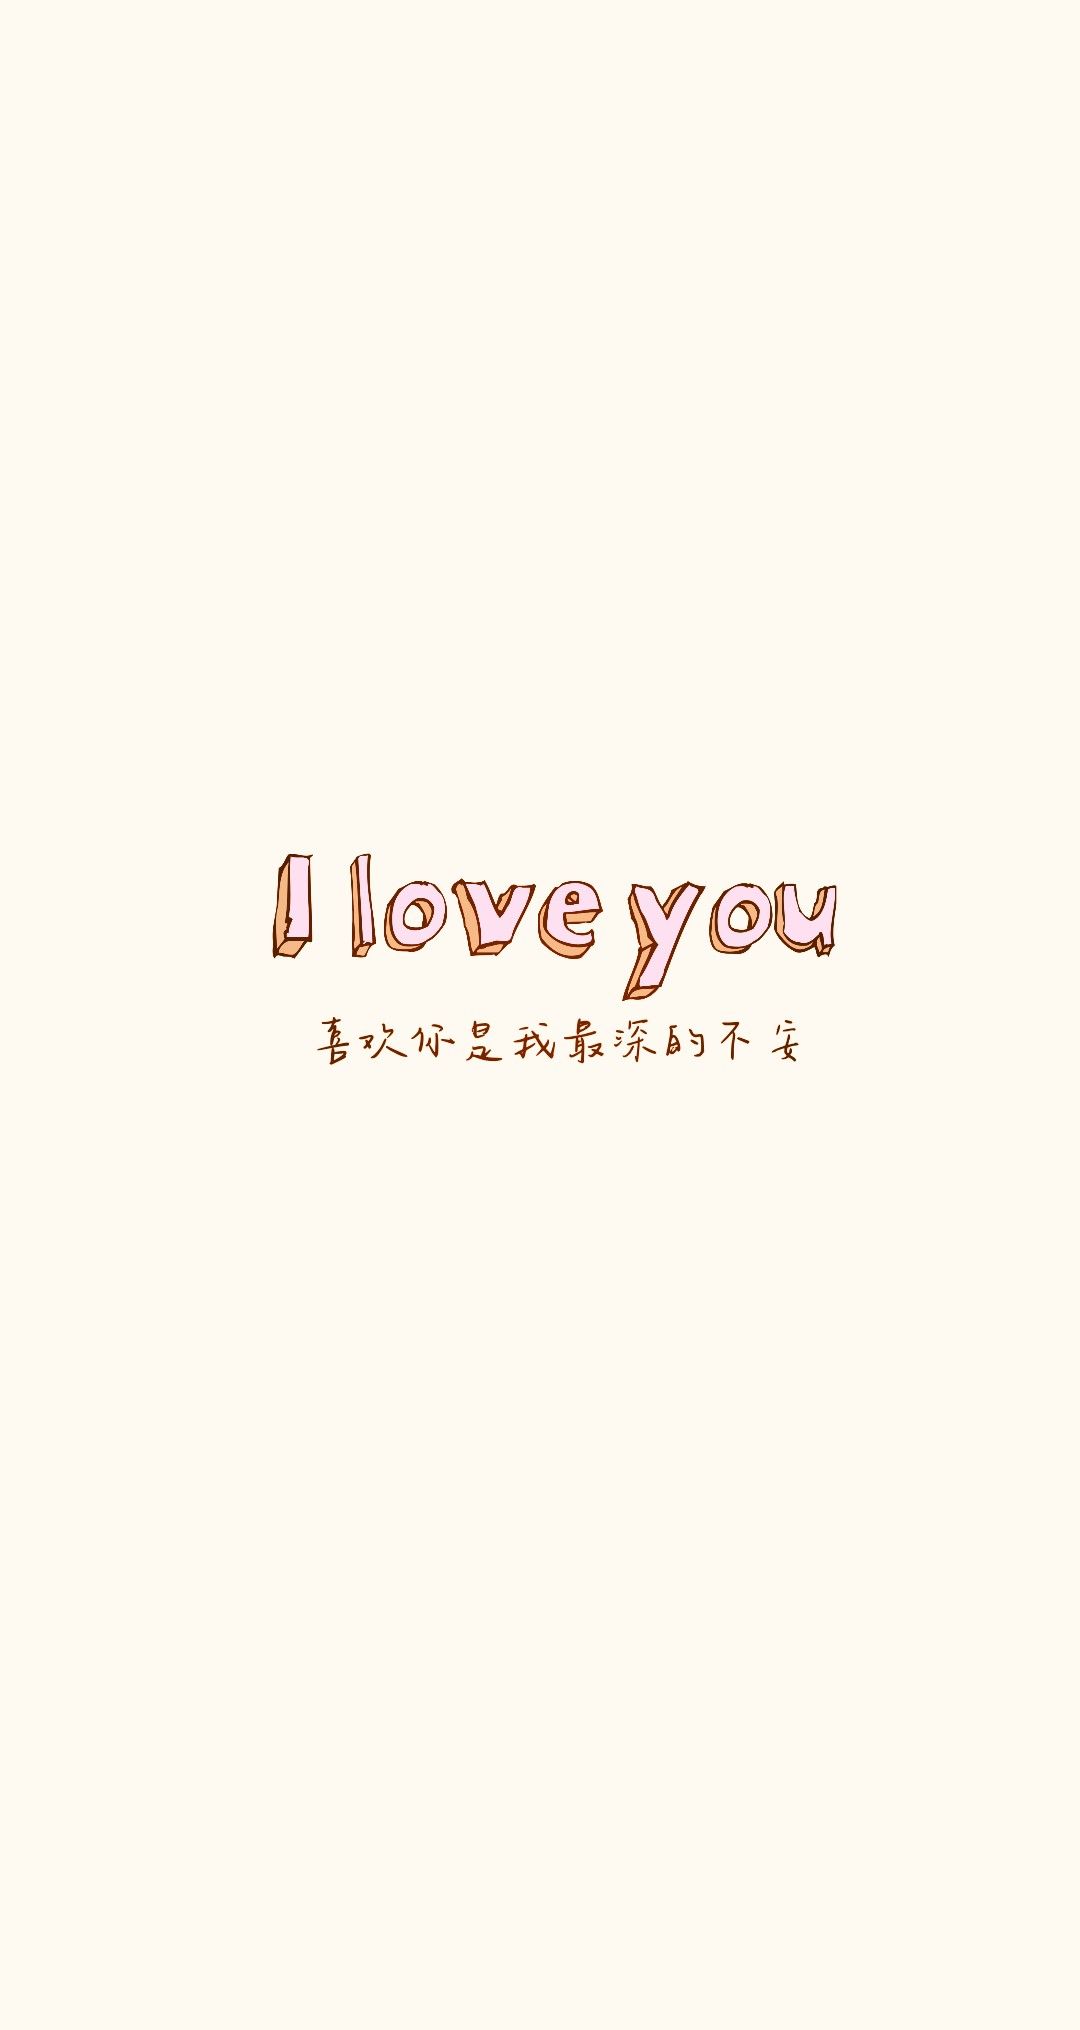 I love you
喜欢你是我最深的不安